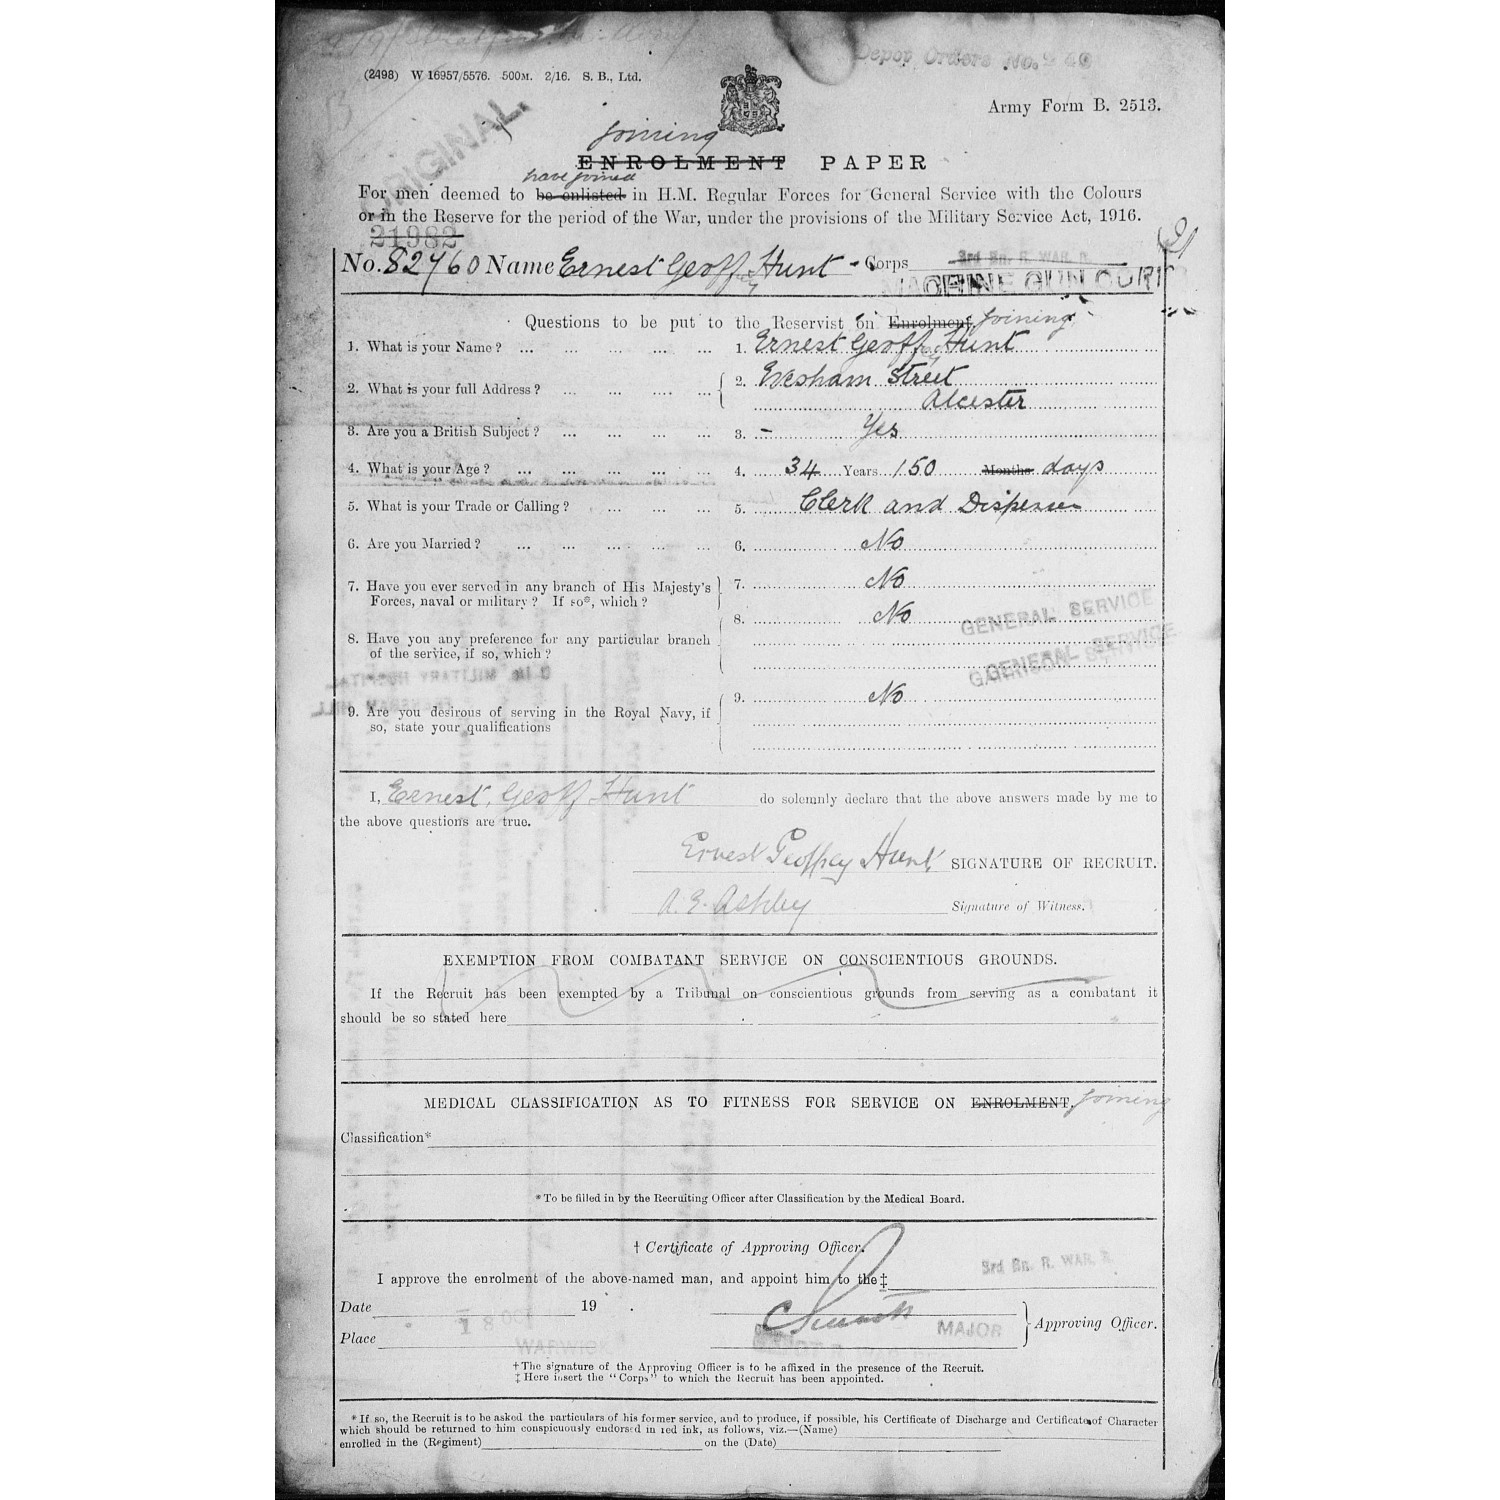 Depot Orders No. 240
(2498) W 16957/5576. 500M. 2/16. S. B., Ltd.
Army Form B. 2513.
ORIGINAL.
joining
ENROLMENT PAPER
have joined
For men deemed to be enlisted in H.M. Regular Forces for General Service with the Colours
or in the Reserve for the period of the War, under the provisions of the Military Service Act, 1916.
21982
3rd Bn. R. WAR. R.
No. 82760 Name Ernest Geoffrey Hunt - Corps
MACHINE GUN CORPS
Questions to be put to the Reservist on Enrolment. joining
1. What is your Name ? ... ... ... ... ... 1. Ernest Geoffrey Hunt
2. What is your full Address ? ... ... ... ... 2. Evesham Street
Alcester
3. Are you a British Subject ? ... ... ... ... 3. - Yes
4. What is your Age ? ... ... ... ... ... 4. 34 Years 150 Months days
5. What is your Trade or Calling ? ... ... ... 5. Clerk and Dispenser
6. Are you Married ? ... ... ... ... ... 6. No
7. Have you ever served in any branch of His Majesty's 7. No
Forces, naval or military ? If so*, which ?
8. No
GENERAL SERVICE
8. Have you any preference for any particular branch
of the service, if so, which ?
GENERAL SERVICE
GARRISON SERVICE
MILITARY HOSPITAL
9. No
9. Are you desirous of serving in the Royal Navy, if
so, state your qualifications
I, Ernest Geoff Hunt do solemnly declare that the above answers made by me to
the above questions are true.
Ernest Geoffrey Hunt SIGNATURE OF RECRUIT.
A. E. Ashby Signature of Witness.
EXEMPTION FROM COMBATANT SERVICE ON CONSCIENTIOUS GROUNDS.
If the Recruit has been exempted by a Tribunal on conscientious grounds from serving as a combatant it
should be so stated here
MEDICAL CLASSIFICATION AS TO FITNESS FOR SERVICE ON ENROLMENT. joining
Classification*
*To be filled in by the Recruiting Officer after Classification by the Medical Board.
† Certificate of Approving Officer.
3rd Bn. R. WAR. R.
I approve the enrolment of the above-named man, and appoint him to the‡
Date 18 OCT 19 .
MAJOR Approving Officer.
Place WARWICK
†The signature of the Approving Officer is to be affixed in the presence of the Recruit.
‡ Here insert the "Corps" to which the Recruit has been appointed.
* If so, the Recruit is to be asked the particulars of his former service, and to produce, if possible, his Certificate of Discharge and Certificate of Character
which should be returned to him conspicuously endorsed in red ink, as follows, viz.—(Name)
enrolled in the (Regiment) on the (Date)